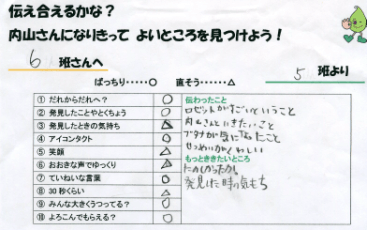 伝え合えるかな?
内山さんになりきって よいところを見つけよう!
6 班さんへ
5 班より
ばっちり・・・・・○ 直そう・・・・・・△
① だれからだれへ? ○
② 発見したことやとくちょう ○
③ 発見したときの気持ち △
④ アイコンタクト ○
⑤ 笑顔 △
⑥ おおきな声でゆっくり ○
⑦ ていねいな言葉 ○
⑧ 30 秒くらい △
⑨ みんな大きくうつってる? ○
⑩ よろこんでもらえる? ○
伝わったこと
ロゼットがすごいということ
内山さんにききたいこと
ブタナが気になったこと
せつめいがくわしい
もっとききたいところ
たのしかったか
発見した時の気もち